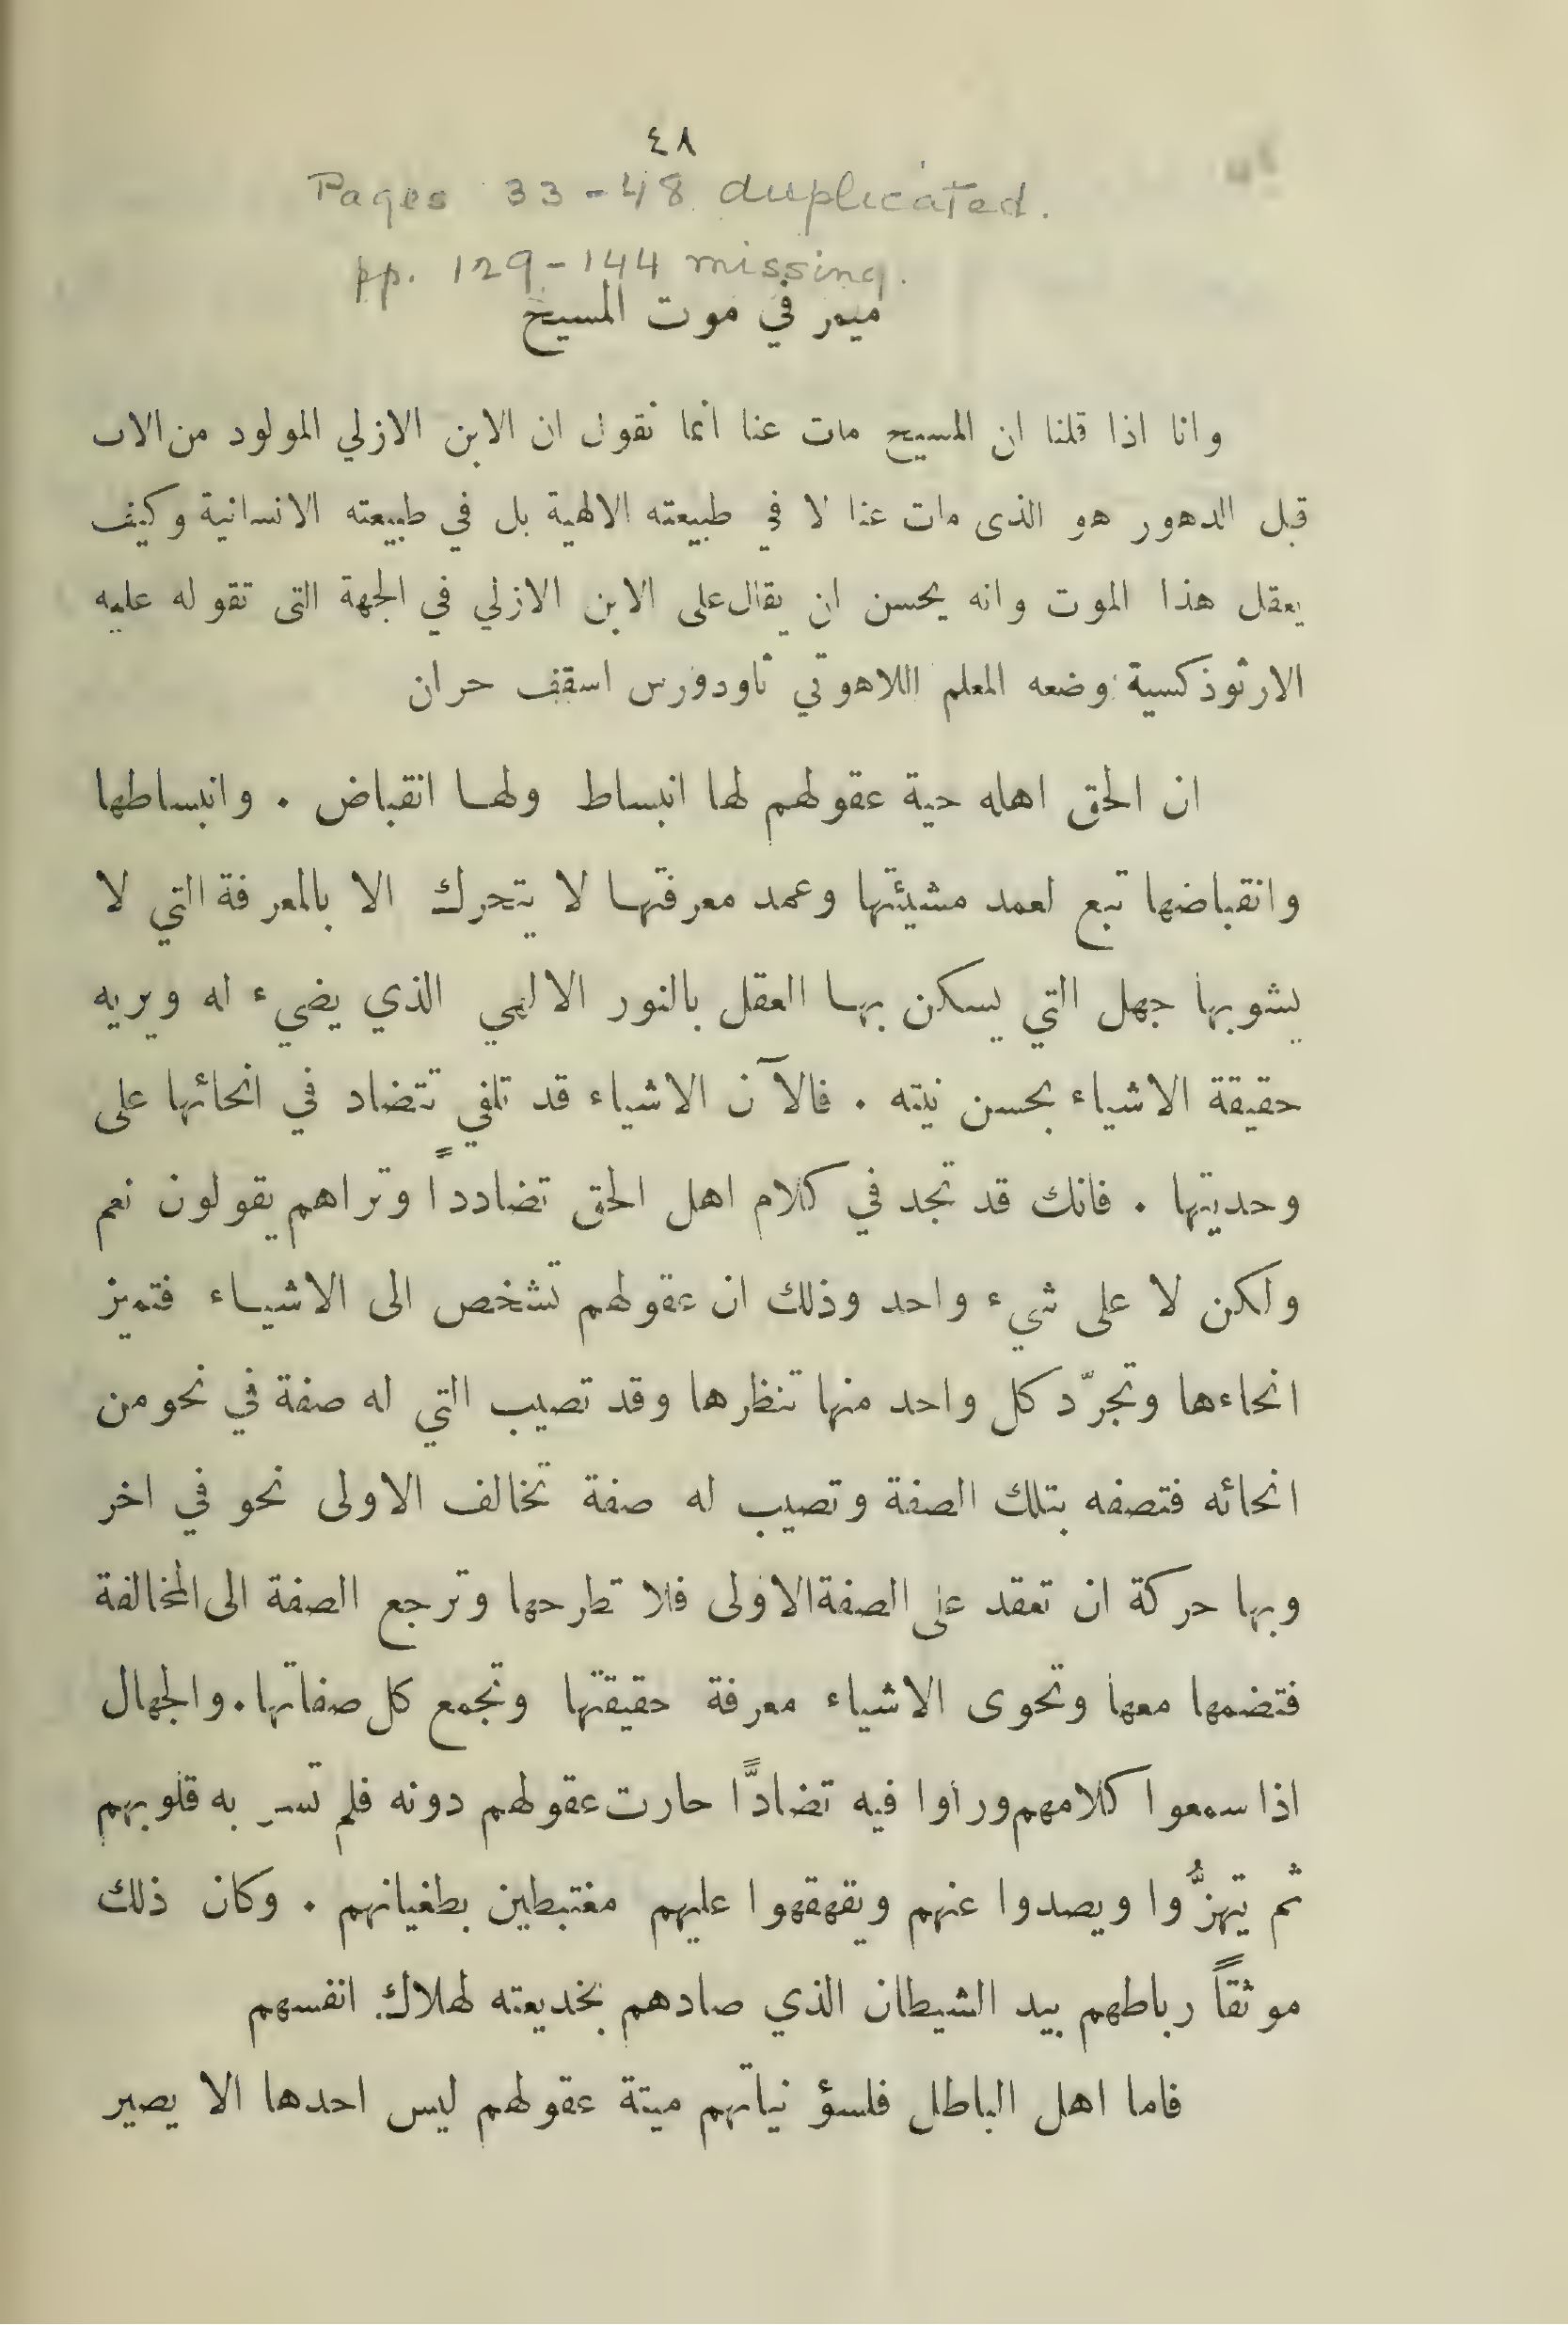 ٤٨
Pages 33-48 duplicated.
pp. 129-144 missing.
ميمر في موت المسيح
وانا اذا قلنا ان المسيح مات عنا انما نقول ان الابن الازلي المولود من الاب
قبل الدهور هو الذى مات عنا لا في طبيعته الالهية بل في طبيعته الانسانية وكيف
يعقل هذا الموت وانه يحسن ان يقال على الابن الازلي في الجهة التى تقوله عليه
الارثوذكسية وضعه المعلم اللاهوتي ثاودورس اسقف حران
ان الحق اهله حية عقولهم لها انبساط ولها انقباض . وانبساطها
وانقباضها تبع لعمد مشيئتها وعمد معرفتها لا يتحرك الا بالمعرفة التي لا
يشوبها جهل التي يسكن بها العقل بالنور الالهي الذي يضيء له ويريه
حقيقة الاشياء بحسن نيته . فالآن الاشياء قد تلفي تتضاد في انحائها على
وحديتها . فانك قد تجد في كلام اهل الحق تضادداً وتراهم يقولون نعم
ولكن لا على شيء واحد وذلك ان عقولهم تشخص الى الاشياء فتميز
انحاءها وتجرّد كل واحد منها تنظرها وقد تصيب التي له صفة في نحو من
انحائه فتصفه بتلك الصفة وتصيب له صفة تخالف الاولى نحو في اخر
وبها حركة ان تعقد على الصفة الاولى فلا تطرحها وترجع الصفة الى المخالفة
فتضمها معها وتحوى الاشياء معرفة حقيقتها وتجمع كل صفاتها . والجهال
اذا سمعوا كلامهم وراوا فيه تضادًّا حارت عقولهم دونه فلم تسر به قلوبهم
ثم يتهزُّوا ويصدوا عنهم ويقهقهوا عليهم مغتبطين بطغيانهم . وكان ذلك
موثقاً رباطهم بيد الشيطان الذي صادهم بخديعته لهلاك انفسهم
فاما اهل الباطل فلسؤ نياتهم ميتة عقولهم ليس احدها الا يصير